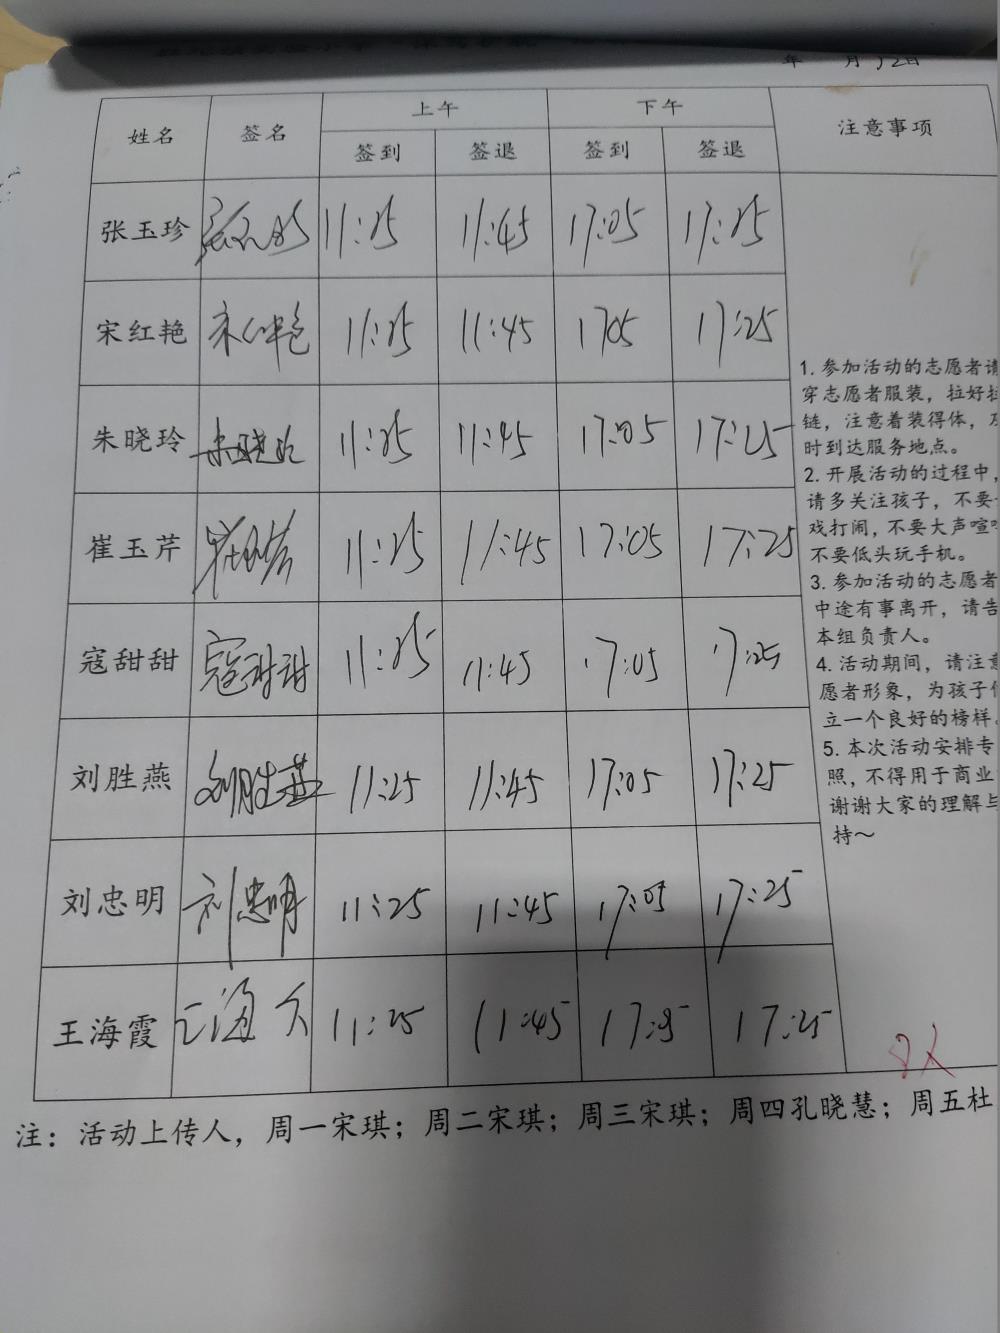 年 月12日
姓名 签名 上午 下午 注意事项
签到 签退 签到 签退
张玉珍 11:25 11:45 17:05 17:25
宋红艳 宋红艳 11:25 11:45 1705 17:25
朱晓玲 朱晓玲 11:25 11:45 17:05 17:25
崔玉芹 崔玉芹 11:25 11:45 17:05 17:25
寇甜甜 寇甜甜 11:25 11:45 17:05 17:25
刘胜燕 刘胜燕 11:25 11:45 17:05 17:25
刘忠明 刘忠明 11:25 11:45 17:05 17:25
王海霞 11:25 11:45 17:25
1. 参加活动的志愿者请
穿志愿者服装，拉好拉
链，注意着装得体，及
时到达服务地点。
2. 开展活动的过程中，
请多关注孩子，不要
戏打闹，不要大声喧
不要低头玩手机。
3. 参加活动的志愿者
中途有事离开，请告
本组负责人。
4. 活动期间，请注意
愿者形象，为孩子
立一个良好的榜样。
5. 本次活动安排专
照，不得用于商业
谢谢大家的理解与
持～
注：活动上传人，周一宋琪；周二宋琪；周三宋琪；周四孔晓慧；周五杜